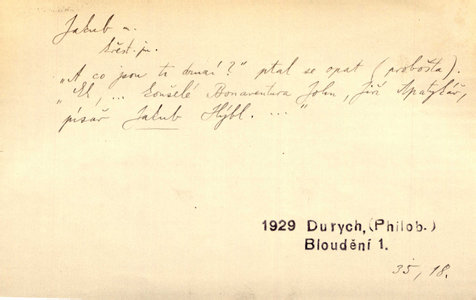 Jakub m.
křest. jm.
„A co jsou ti druzí?" ptal se opat (probošta).
„Eh, ... konšelé Bonaventura John, Jiří Špatykář,
písař Jakub Hýbl. ..."
1929 Durych, (Philob.)
Bloudění 1.
35, 18.